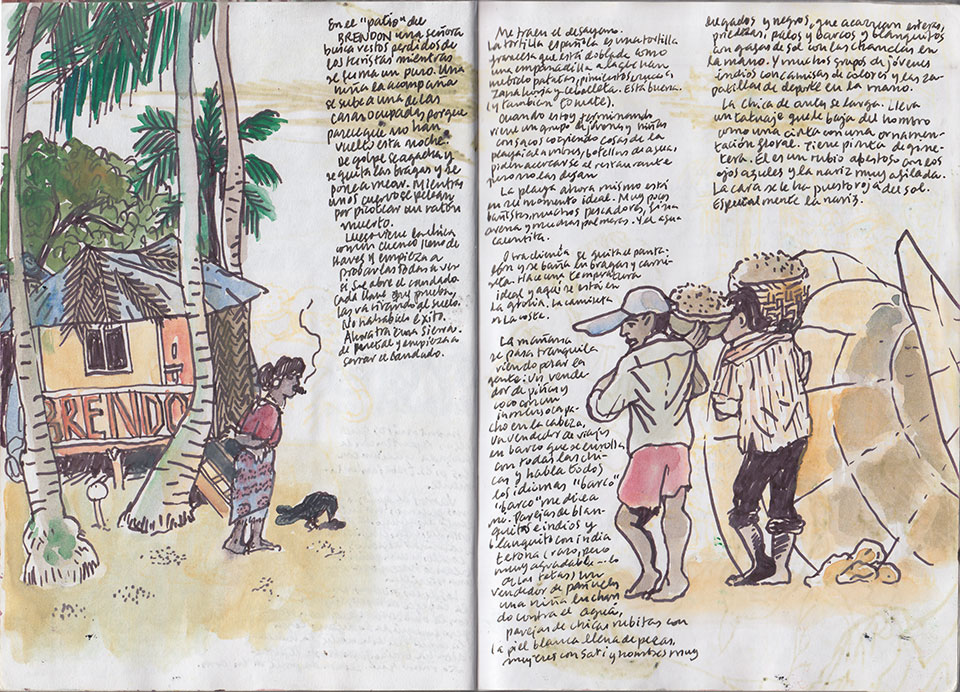 En el "patio" del
BRENDON una señora
busca restos perdidos de
los turistas mientras
se fuma un puro. Una
niña la acompaña
se sube a una de las
casas ocupadas porque
parece que no han
vuelto esta noche.
De golpe se agacha y
se quita las bragas y se
pone a mear. Mientras
unos cuervos se pelean
por picotear un ratón
muerto.
Luego viene la chica
con un cuenco lleno de
llaves y empieza a
probarlas todas a ver
si se abre el candado.
Cada llave que prueba,
las va tirando al suelo.
No ha habido éxito.
Ahora trae una sierra
de metal y empieza a
serrar el candado.
BRENDO
Me traen el desayuno.
La tortilla española es una tortilla
francesa que está doblada como
una empanadilla a la que han
metido patatas, pimientos
zanahoria y cebolleta. Está buena.
(y también tomate).
Cuando estoy terminando
viene un grupo de jóvenes y niñas
con sacos recogiendo cosas de la
playa: alambres, botellas de agua,
piden acercarse al restaurante
pero no las dejan
La playa ahora mismo está
en su momento ideal. Muy pocos
bañistas, muchos pescadores, fina
arena y muchas palmeras. Y el agua
calentita.
Otra clienta se quita el panta-
lón y se baña en bragas y cami-
seta. Hace una temperatura
ideal y aquí se está en
la gloria. La camiseta
es Lacoste.
La mañana
se pasa tranquila
viendo pasar la
gente: Un vende
dor de piñas y
coco con un
inmenso capa-
cho en la cabeza,
un vendedor de viajes
en barco que se enrolla
con todas las chi-
cas y habla todos
los idiomas "barco"
"barco" me dice a
mí. Parejas de blan-
quitos e indios y
blanquito con india
tetona (raro, pero
muy agradable... lo
de las tetas) un
vendedor de pañuelos
una niña luchan
do contra el agua,
parejas de chicas rubitas con
la piel blanca llena de pecas,
mujeres con sari y hombres muy
delgados y negros, que acarrean esteras,
piedras, palos y barcos y blanquitos
con gafas de sol con las chanclas en
la mano. Y muchos grupos de jóvenes
indios con camisas de colores y las za-
patillas de deporte en la mano.
La chica de antes se larga. Lleva
un tatuaje que le baja del hombro
como una cinta con una ornamen-
tación floral. Tiene pinta de
Él es un rubio apestoso con los
ojos azules y la nariz muy afilada.
La cara se le ha puesto roja del sol.
Especialmente la nariz.